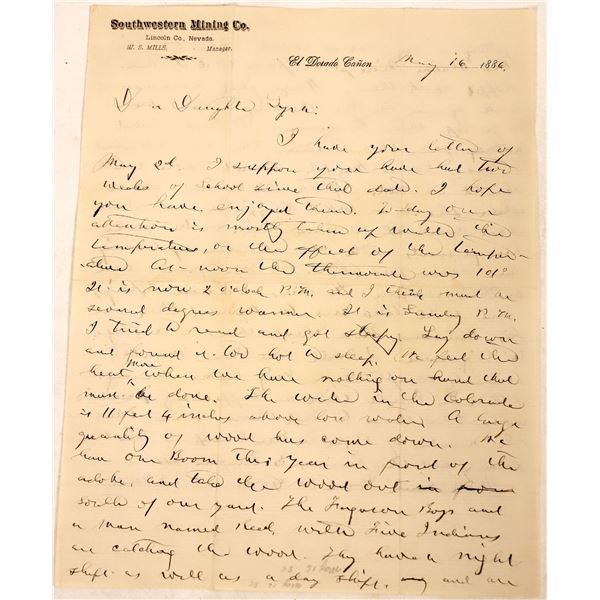 Southwestern Mining Co.
Lincoln Co., Nevada.
W. S. MILLS, Manager.
El Dorado Cañon May 16. 1886.
Dear Daughter
I have your letter of
May 2d. I suppose you have had two
weeks of school since that date. I hope
you have enjoyed them. To-day our
attention is mostly taken up with the
temperature, or the effect of the temper-
ature At noon the thermomete was 101°
It is now 2 o'clock P.M. and I think must be
several degrees warmer. It is Sunday P.M.
I tried to read and got sleepy. Lay down
and found it too hot to sleep. We feel the
heat more when we have nothing on hand that
must be done. The water in the Colorado
is 11 feet 4 inches above low water A large
quantity of wood has come down. We
have our Boom this year in front of the
adobe, and take the wood out in from
south of our yard. The Ferguson Boys and
a man named Reed, with Five Indians
are catching the wood. They have a night
shift as well as a day shift. and are